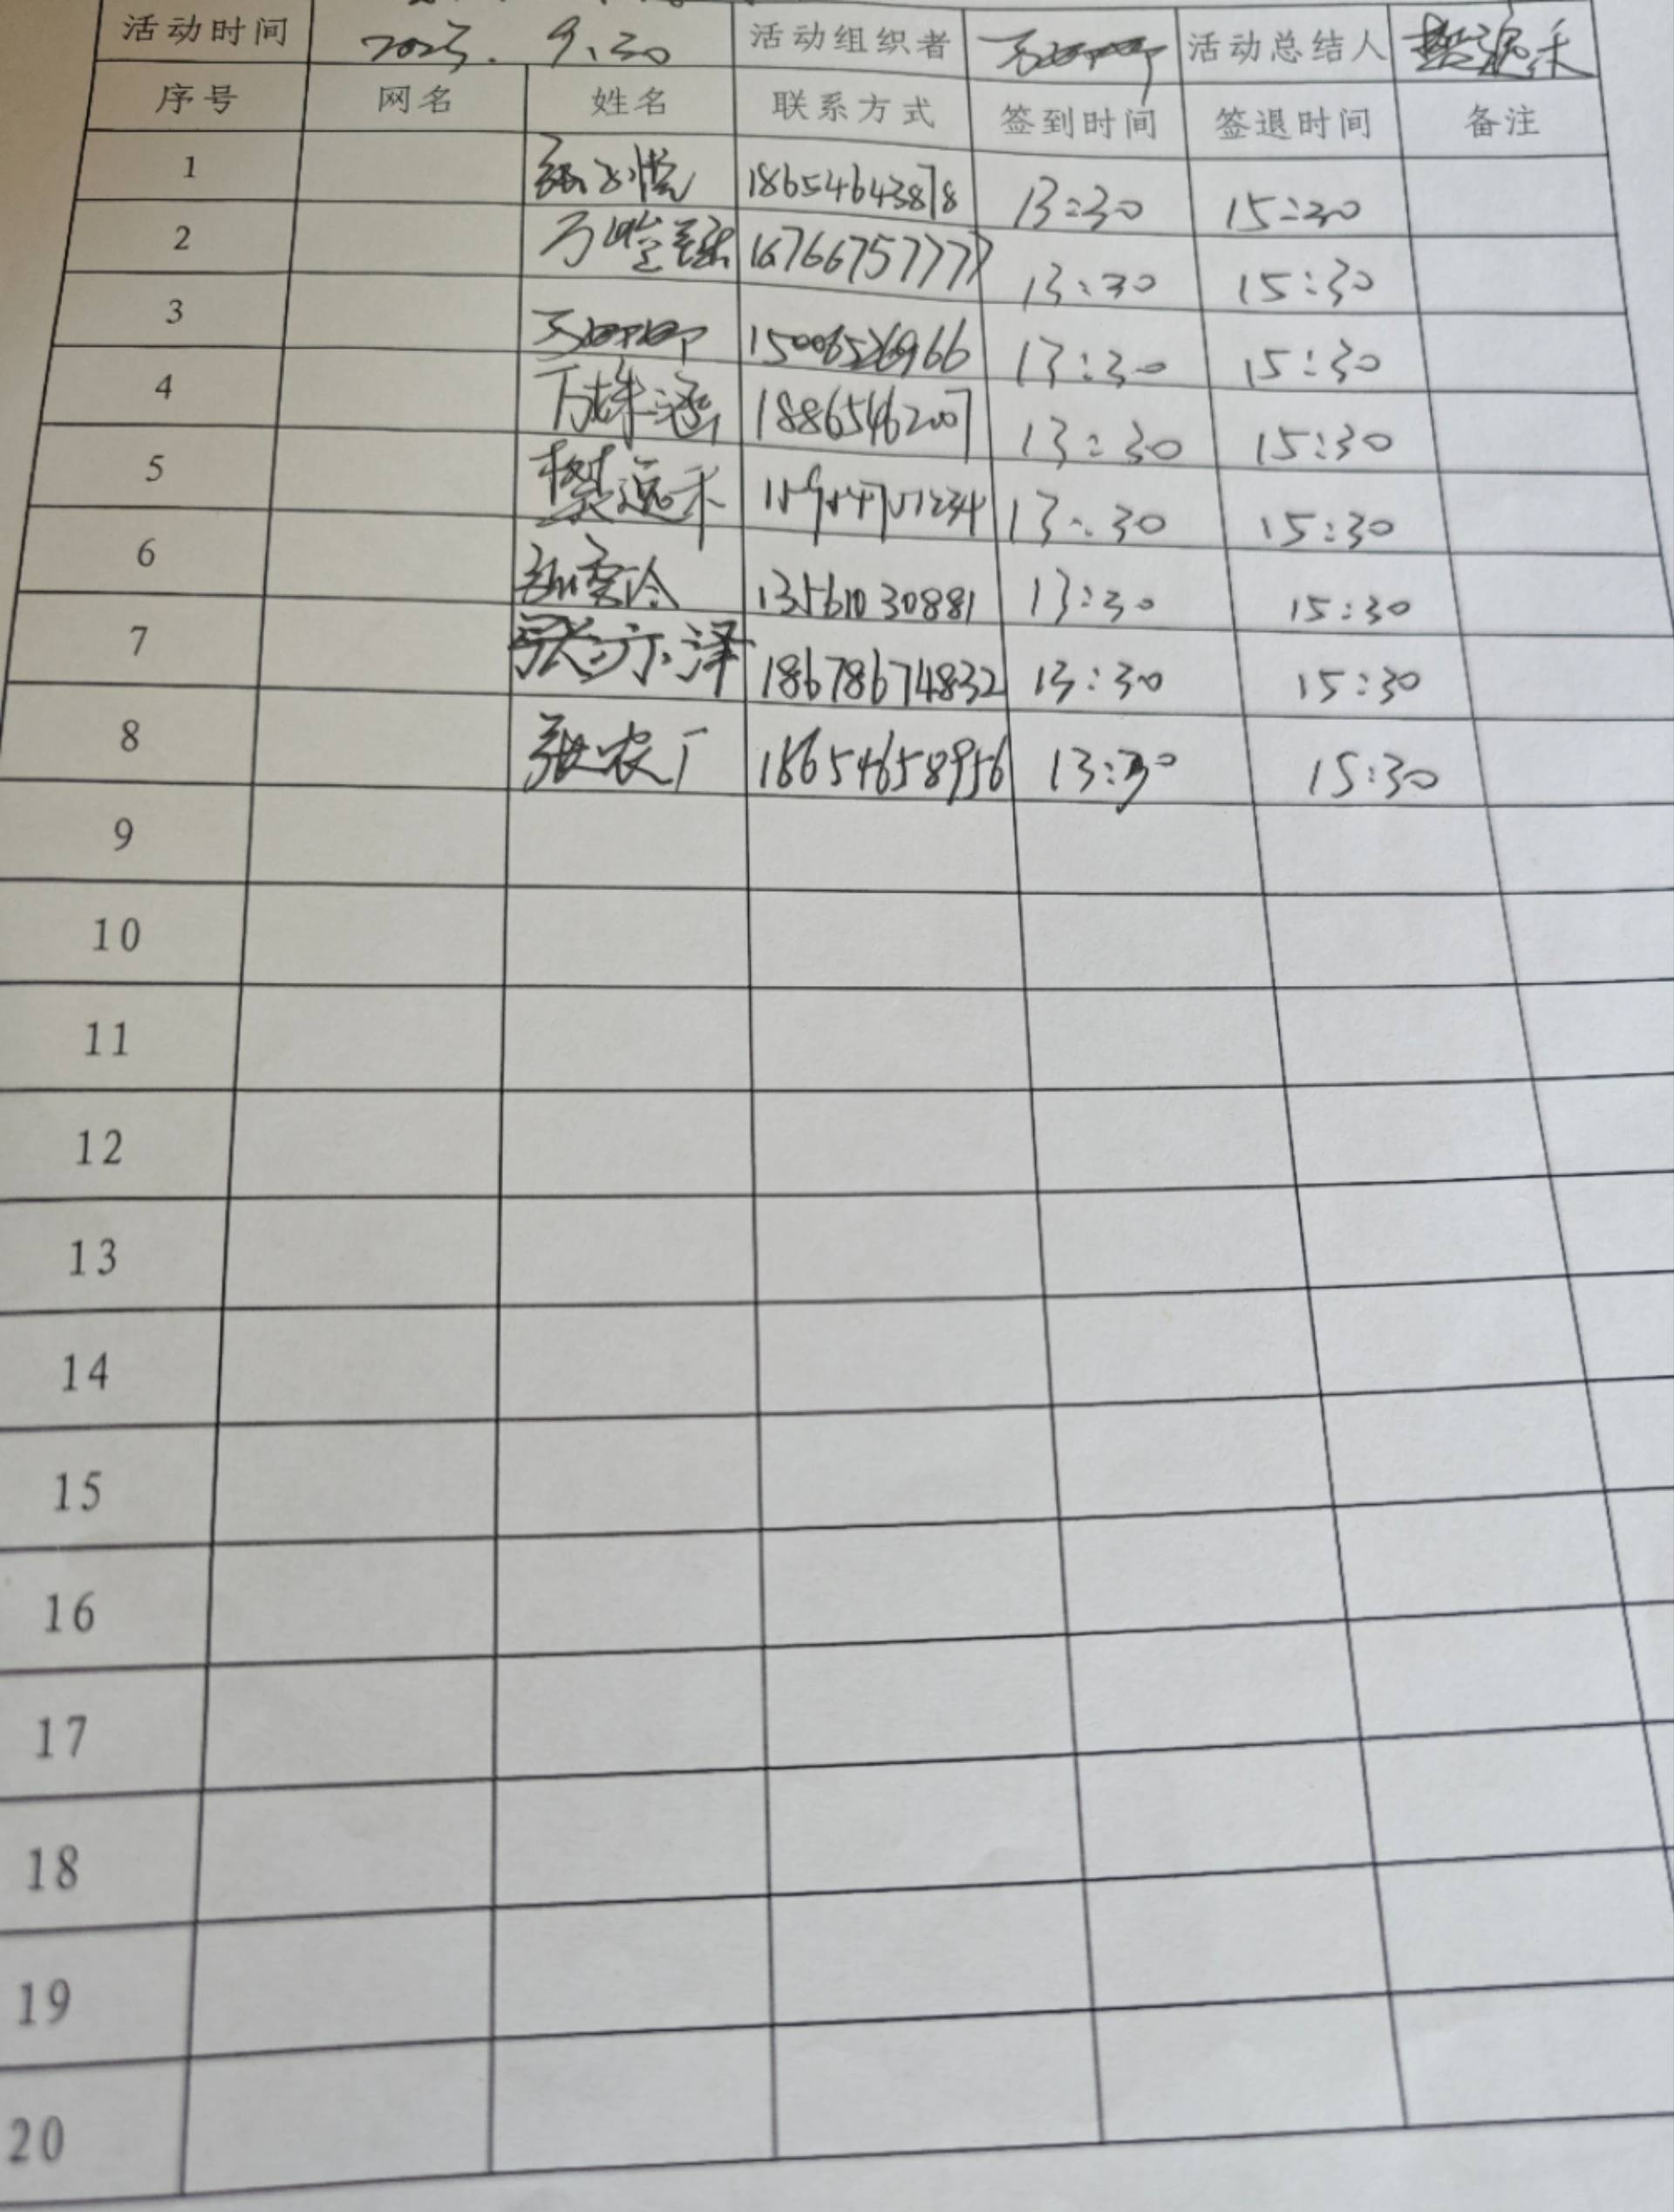 活动时间 2025. 9.30 活动组织者 活动总结人
序号 网名 姓名 联系方式 签到时间 签退时间 备注
1 18654643878 13:30 15:30
2 16766757777 13:30 15:30
3 15006526966 13:30 15:30
4 18865462007 13:30 15:30
5 樊逸禾 13:30 15:30
6 13561030881 13:30 15:30
7 张亦泽 18678674832 13:30 15:30
8 张农厂 18654658956 13:30 15:30
9
10
11
12
13
14
15
16
17
18
19
20